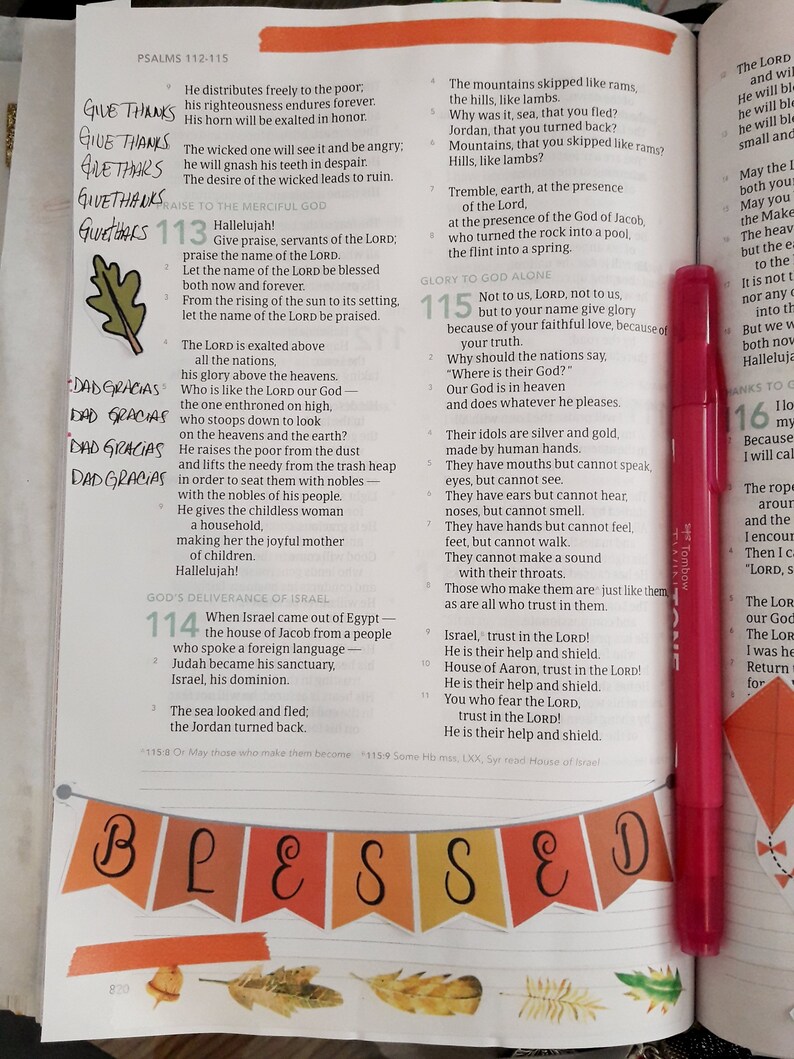 PSALMS 112-115
GIVE THANKS
GIVE THANKS
GIVE THANKS
GIVE THANKS
GIVE THANKS
DAD GRACIAS
DAD GRACIAS
DAD GRACIAS
DAD GRACIAS
9 He distributes freely to the poor;
his righteousness endures forever.
His horn will be exalted in honor.
The wicked one will see it and be angry;
he will gnash his teeth in despair.
The desire of the wicked leads to ruin.
PRAISE TO THE MERCIFUL GOD
113 Hallelujah!
Give praise, servants of the LORD;
praise the name of the LORD.
2 Let the name of the LORD be blessed
both now and forever.
3 From the rising of the sun to its setting,
let the name of the LORD be praised.
4 The LORD is exalted above
all the nations,
his glory above the heavens.
5 Who is like the LORD our God —
the one enthroned on high,
who stoops down to look
on the heavens and the earth?
He raises the poor from the dust
and lifts the needy from the trash heap
in order to seat them with nobles —
with the nobles of his people.
9 He gives the childless woman
a household,
making her the joyful mother
of children.
Hallelujah!
GOD'S DELIVERANCE OF ISRAEL
114 When Israel came out of Egypt —
the house of Jacob from a people
who spoke a foreign language —
2 Judah became his sanctuary,
Israel, his dominion.
3 The sea looked and fled;
the Jordan turned back.
4 The mountains skipped like rams,
the hills, like lambs.
5 Why was it, sea, that you fled?
Jordan, that you turned back?
6 Mountains, that you skipped like rams?
Hills, like lambs?
7 Tremble, earth, at the presence
of the Lord,
at the presence of the God of Jacob,
8 who turned the rock into a pool,
the flint into a spring.
GLORY TO GOD ALONE
115 Not to us, LORD, not to us,
but to your name give glory
because of your faithful love, because of
your truth.
2 Why should the nations say,
“Where is their God?”
3 Our God is in heaven
and does whatever he pleases.
4 Their idols are silver and gold,
made by human hands.
5 They have mouths but cannot speak,
eyes, but cannot see.
6 They have ears but cannot hear,
noses, but cannot smell.
7 They have hands but cannot feel,
feet, but cannot walk.
They cannot make a sound
with their throats.
8 Those who make them are just like them,
as are all who trust in them.
9 Israel, trust in the LORD!
He is their help and shield.
10 House of Aaron, trust in the LORD!
He is their help and shield.
11 You who fear the LORD,
trust in the LORD!
He is their help and shield.
115:8 Or May those who make them become 115:9 Some Hb mss, LXX, Syr read House of Israel
BLESSED
820
Tombow
TWIN TONE
The LORD
and wil
He will ble
he will ble
he will ble
small and
May the L
both your
May you
the Make
The heav
but the ea
to the
It is not t
nor any o
into th
But we w
both now
Halleluja
THANKS TO G
116 I lo
my
Because
I will cal
The rope
aroun
and the
I encour
Then I ca
“LORD, s
The LOR
our God
The LOR
I was he
Return
for